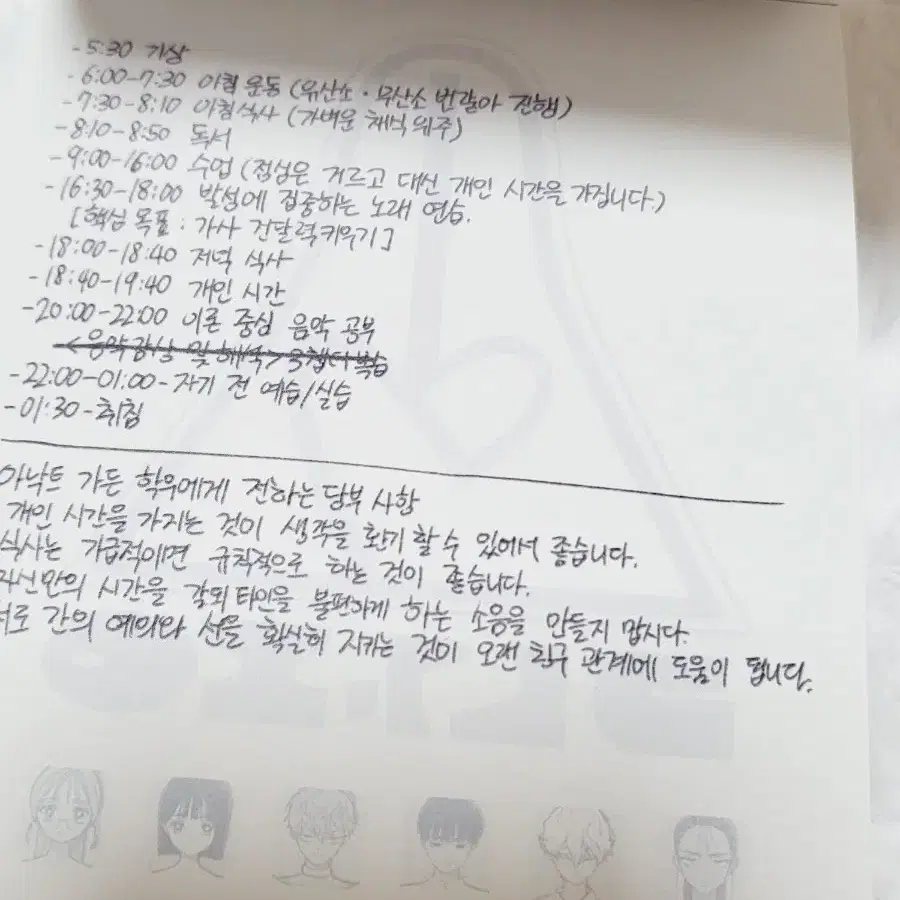 -5:30 기상
-6:00-7:30 아침 운동 (유산소·무산소 번갈아 진행)
-7:30-8:10 아침식사 (가벼운 채식 위주)
-8:10-8:50 독서
-9:00-16:00 수업 (점심은 거르고 대신 개인 시간을 가집니다.)
-16:30-18:00 발성에 집중하는 노래 연습.
[핵심 목표 : 가사 전달력 키우기]
-18:00-18:40 저녁 식사
-18:40-19:40 개인 시간
-20:00-22:00 이론 중심 음악 공부
<음악감상 및 해석> 복습
-22:00-01:00-자기 전 예습/실습
-01:30-취침
아낙트 가든 학우에게 전하는 당부 사항
개인 시간을 가지는 것이 생각을 환기 할 수 있어서 좋습니다.
식사는 가급적이면 규칙적으로 하는 것이 좋습니다.
자신만의 시간을 갖되 타인을 불편하게 하는 소음을 만들지 맙시다.
서로 간의 예의와 선을 확실히 지키는 것이 오랜 친구 관계에 도움이 됩니다.